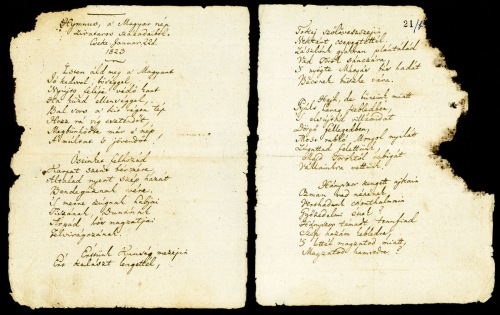 Hymnus, a' Magyar nép
zivataros századaiból.
Cseke, Januar. 22d
1823
Isten áldd meg a' Magyart
Jó kedvvel, bőséggel,
Nyújts feléje védő kart
Ha küzd ellenséggel;
Bal sors a' kit régen tép
Hozz rá víg esztendőt,
Megbűnhődte már e' nép
A' múltat 's jövendőt.
Őseinket felhozád
Kárpát szent bérczére
Általad nyert szép hazát
Bendegúznak vére
'S merre zúgnak habjai
Tiszának, Dunának
Árpád hős magzatjai
Felvirágozának.
Értünk Kunság mezején
Ért kalászt lengettél,
21
Tokaj szőlővesszein
Nektárt csepegtettél
Zászlónk gyakran plántálád
Vad török sánczára,
'S nyögte Mátyás bús hadát
Bécsnek büszke vára.
Hajh, de bűneink miatt
Gyúlt harag kebledben,
'S elsújtád villámidat
Dörgő fellegedben,
Most rabló Mongol nyilát
Zúgattad felettünk,
Majd töröktől rabigát
Vállainkra vettünk.
Hányszor zengett ajkain
Ozman vad népének
Vert hadunk csonthalmain
Győzedelmi ének!
Hányszor támadt tenfiad
Szép hazám kebledre,
'S lettél magzatod miatt
Magzatod hamvedre?